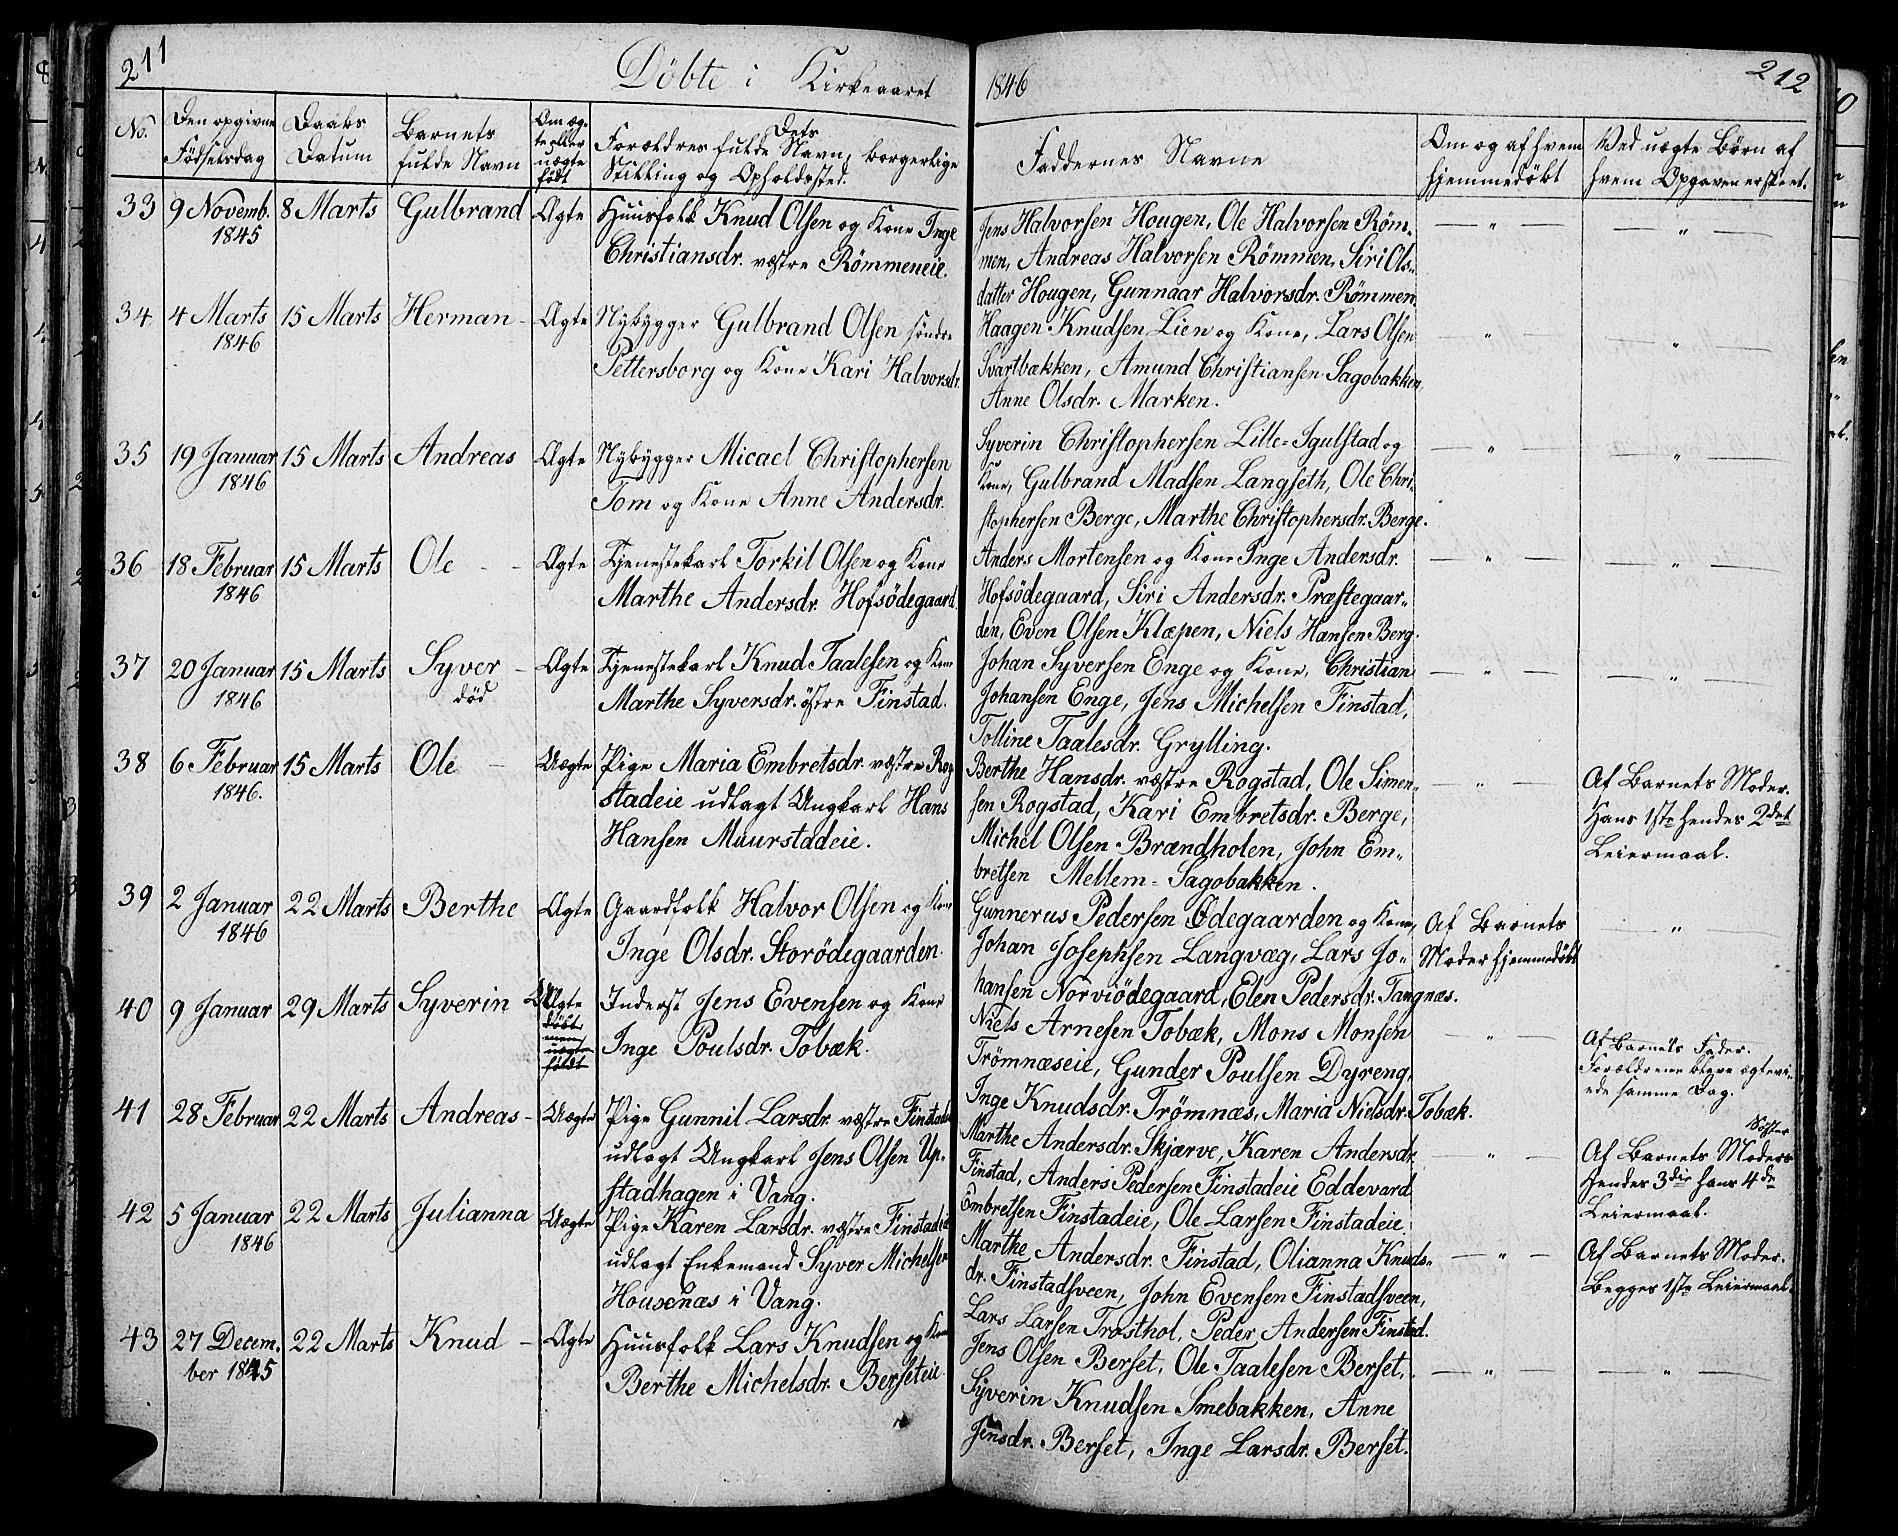 211
Döbte i Kirkeaaret
1846
212
No.
Den opgivne Födselsdag
Daabs Datum
Barnets fulde Navn
Om ægte eller uægte födt
Forældres fulde Navn, Dets borgerlige Stilling og Opholdssted.
Faddernes Navne
Om og af hvem hjemmedöbt
Ved uægte Börn af hvem Opgaven er skeet.
33 9 Novemb. 1845 8 Marts Gulbrand Ægte
Huusfolk Knud Olsen og Kone Inge
Christiansdr. vestre Römmeneie.
Jens Halvorsen Hougen, Ole Halvorsen Röm-
men, Andreas Halvorsen Römmen, Siri Ols-
datter Hougen, Gunnaar Halvorsdr. Römmen.
34 4 Marts 1846 15 Marts Herman Ægte
Nybygger Gulbrand Olsen söndre
Pettersborg og Kone Kari Halvorsdr.
Haagen Knudsen Lien og Kone, Lars Olsen
Svartbækken, Amund Christiansen Sagobakken,
Anne Olsdr. Marken.
35 19 Januar 1846 15 Marts Andreas Ægte
Nybygger Micael Christophersen
Tom og Kone Anne Andersdr.
Syverin Christophersen Lille-Igulstad og
Kone, Gulbrand Madsen Langseth, Ole Chri-
stophersen Berge, Marthe Christophersdr. Berge.
36 18 Februar 1846 15 Marts Ole Ægte
Tjenestekarl Torkil Olsen og Kone
Marthe Andersdr. Hofsödegaard.
Anders Mortensen og Kone Inge Andersdr.
Hofsödegaard, Siri Andersdr. Præstegaar-
den, Even Olsen Klæpen, Niels Hansen Berg.
37 20 Januar 1846 15 Marts Syver död Ægte
Tjenestekarl Knud Taalesen og Kone
Marthe Syversdr. östre Finstad.
Johan Syversen Enge og Kone, Christian
Johansen Enge, Jens Michelsen Finstad,
Tolline Taalesdr. Grylling.
38 6 Februar 1846. 15 Marts Ole Uægte
Pige Maria Embretsdr. vestre Rog
stadeie udlagt Ungkarl Hans
Hansen Muurstadeie.
Berthe Hansdr. vestre Rogstad, Ole Simen-
sen Rogstad, Kari Embretsdr. Berge,
Michel Olsen Brændholen, John Em-
bretsen Mellem-Sagobakken.
Af Barnets Moder.
Hans 1ste hendes 2det
Leiermaal.
39 2 Januar 1846 22 Marts Berthe Ægte
Gaardfolk Halvor Olsen og Kone
Inge Olsdr. Storödegaarden.
Gunnerus Pedersen Ödegaarden og Kone,
Johan Josephsen Langvæg, Lars Jo-
hansen Norviödegaard, Elen Pedersdr. Tangnæs.
Af Barnets
Moder hjemmedöbt
40 9 Januar 29 Marts Syverin Uægte
döbt men uægte födt
Inderst Jens Evensen og Kone
Inge Poulsdr. Tobæk.
Niels Arnesen Tobæk, Mons Monsen
Trömnæseie, Gunder Poulsen Dyreng,
Inge Knudsdr. Trömnæs, Maria Nielsdr. Tobæk.
Af Barnets Fader.
Forældrene bleve ægtevi-
ede samme Dag.
41 28 Februar 22 Marts Andreas Uægte
Pige Gunnil Larsdr. vestre Finstad
udlagt Ungkarl Jens Olsen Up-
stadhagen i Vang.
Marthe Andersdr. Skjærve, Karen Andersdr.
Finstad, Anders Pedersen Finstadeie Eddevard
Embretsen Finstadeie, Ole Larsen Finstadeie.
Af Barnets Moders Söster
hendes 3die hans 4de
Leiermaal.
42 5 Januar 1846 22 Marts Julianna Uægte
Pige Karen Larsdr. vestre Finstadeie
udlagt Enkemand Syver Michelsen
Housenæs i Vang.
Marthe Andersdr. Finstad, Olianna Knuds-
dr. Finstadsveen, John Evensen Finstadsveen,
Lars Larsen Trosthol, Peder Andersen Finstad.
Af Barnets Moder.
Begges 1ste Leiermaal.
43 27 Decem- ber 1845 22 Marts Knud Ægte
Huusfolk Lars Knudsen og Kone
Berthe Michelsdr. Berseteie.
Jens Olsen Berset, Ole Taalesen Berset,
Syverin Knudsen Smebakken, Anne
Jensdr. Berset, Inge Larsdr. Berset.